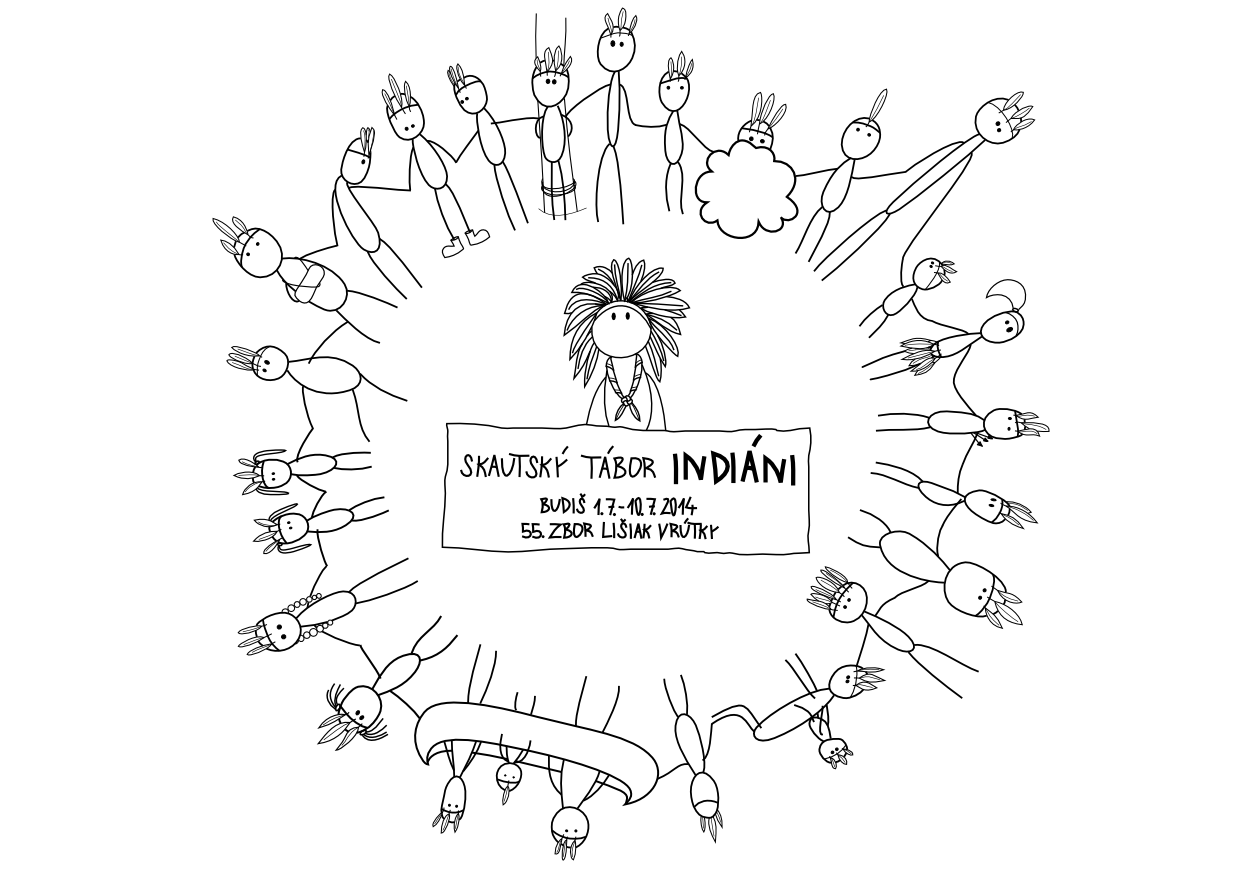 SKAUTSKÝ TÁBOR INDIÁNI
BUDIŠ 1.7.-10.7.2014
55. ZBOR LIŠIAK VRÚTKY